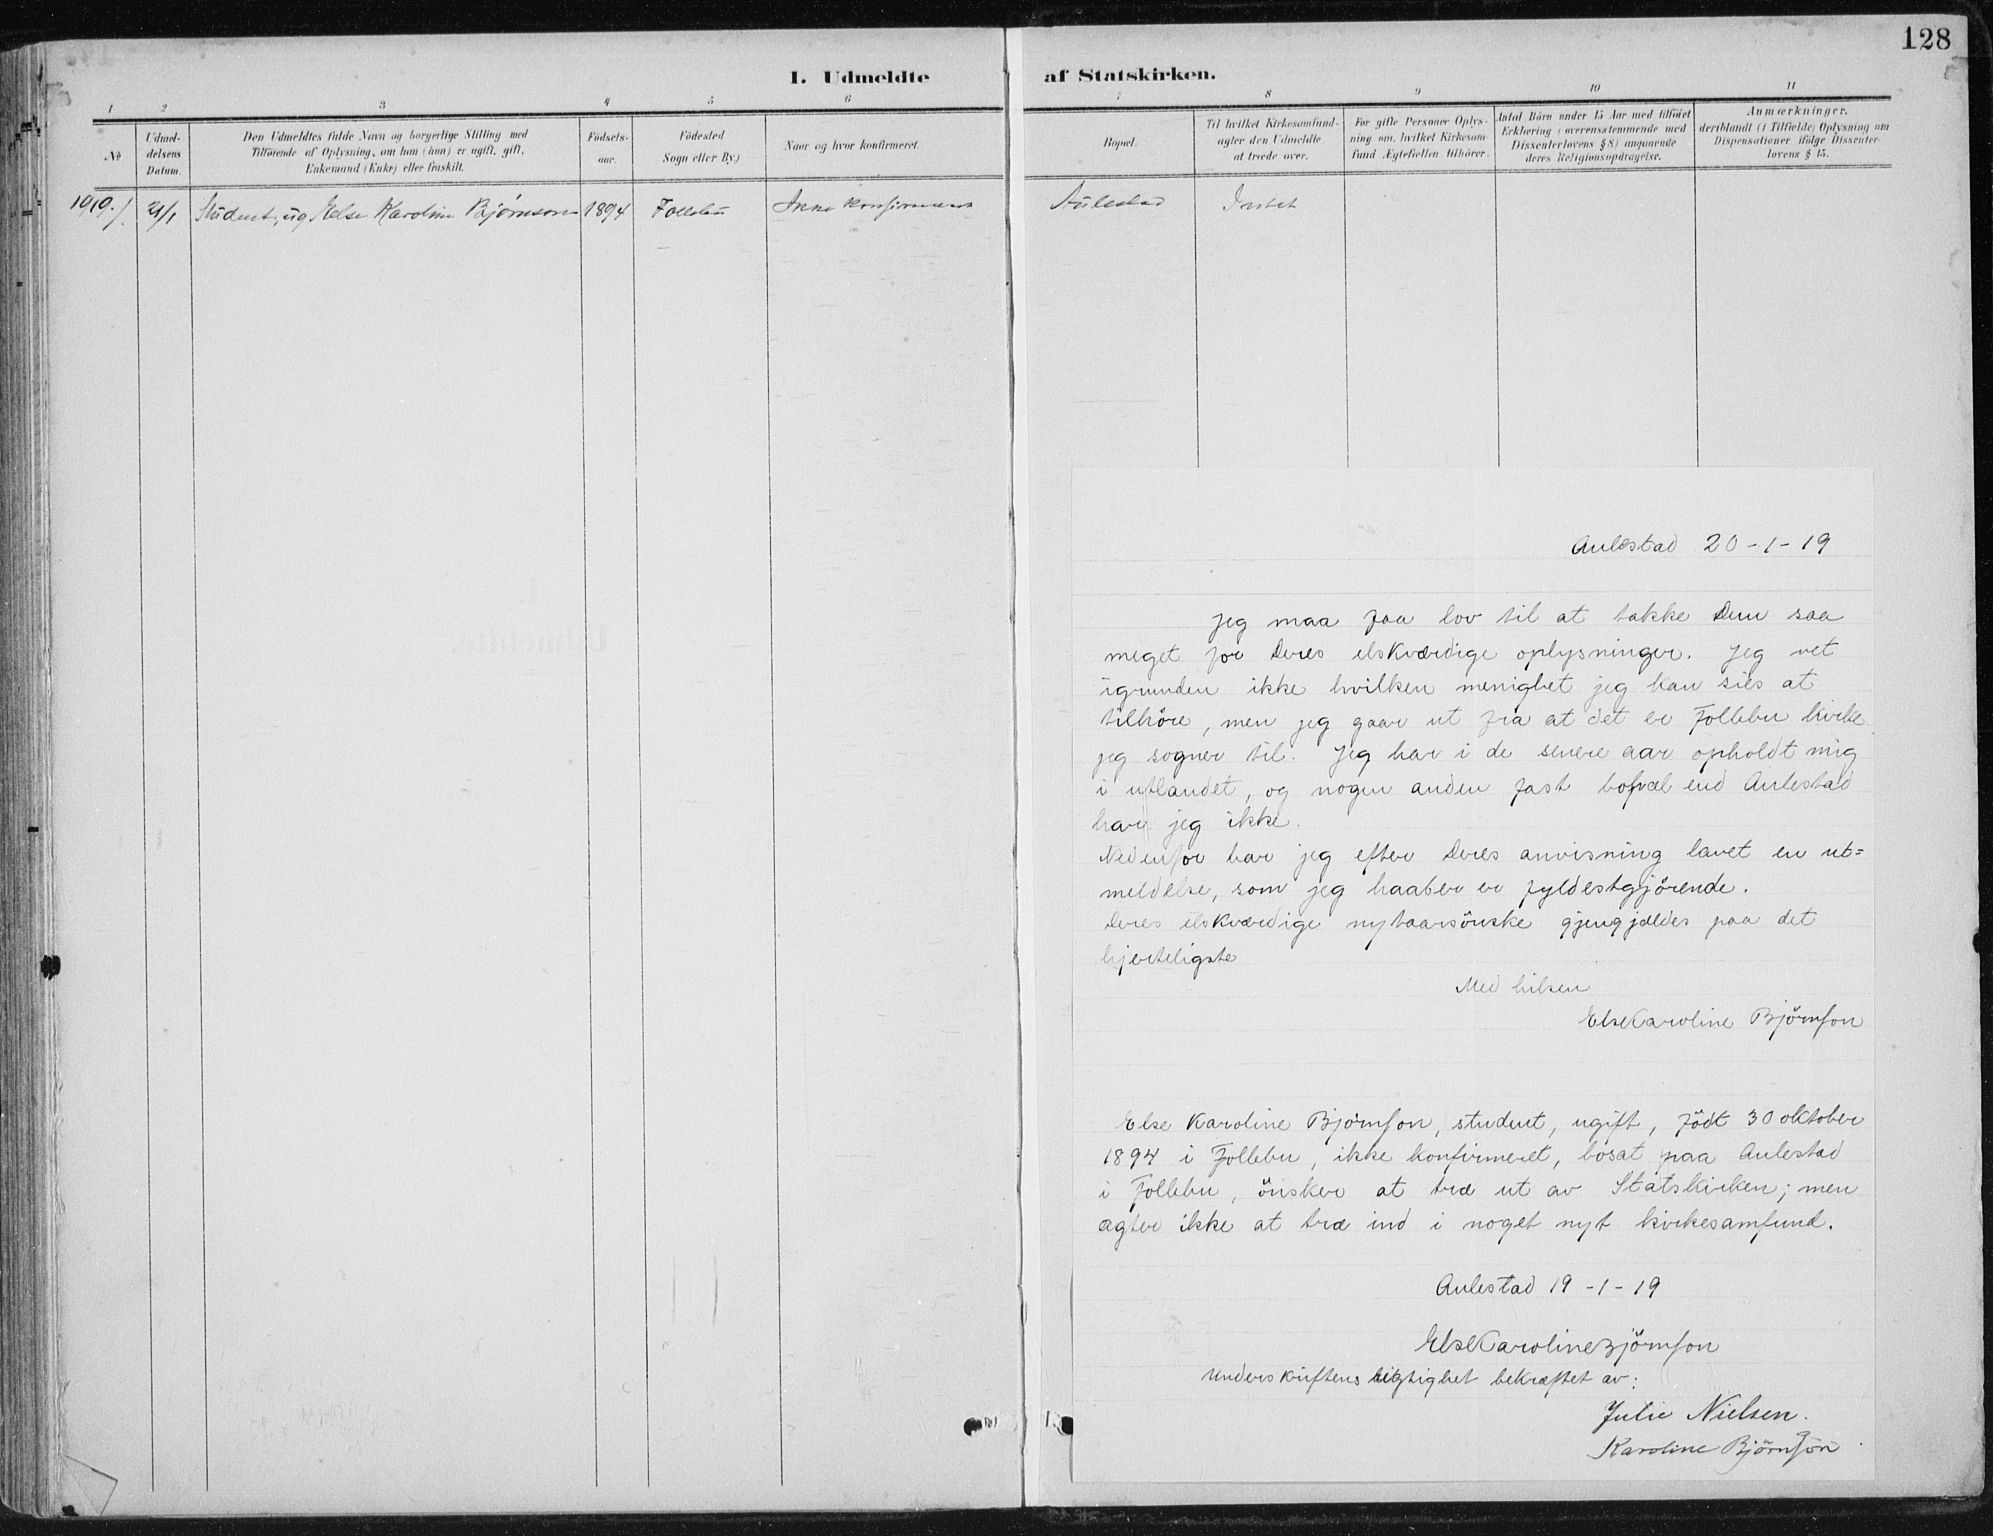 128
I. Udmeldte af Statskirken.
1 2 3 4 5 6 7 8 9 10 11
No
Udmel-
delsens
Datum.
Den Udmeldtes fulde Navn og borgerlige Stilling med
Tilföiende af Oplysning, om han (hun) er ugift, gift,
Enkemand (Enke) eller fraskilt.
Födsels-
aar.
Födested
Sogn eller By.)
Naar og hvor konfirmeret.
Bopæl.
Til hvilket Kirkesamfund
agter den Udmeldte
at træde over.
For gifte Personer Oplys-
ning om, hvilket Kirkesam
fund Ægtefællen tilhører.
Antal Börn under 15 Aar med tilföiet
Erklæring (overensstemmende med
Dissenterlovens § 8) angaaende
deres Religionsopdragelse.
Anmærkninger,
deriblandt (i Tilfælde) Oplysning om
Dispensationer ifölge Dissenter-
lovens § 15.
1919. 1. 21/1 Student, ug. Else Karoline Bjørnson 1894 Follebu Ikke konfirmeret Aulestad Intet
Aulestad 20-1-19
Jeg maa faa lov til at takke Dem saa
meget for Deres elskværdige oplysninger. Jeg vet
igrunden ikke hvilken menighet jeg kan sies at
tilhöre, men jeg gaar ut fra at det er Follebu kirke
jeg sogner til. Jeg har i de senere aar opholdt mig
i utlandet, og nogen anden fast bopæl end Aulestad
har jeg ikke.
Nedenfor har jeg efter Deres anvisning lavet en ut=
meldelse, som jeg haaber er fyldestgjörende.
Deres elskværdige nytaarsönske gjengjældes paa det
hjerteligste
Med hilsen
Else Karoline Björnson
Else Karoline Björnson, student, ugift, födt 30 oktober
1894 i Follebu, ikke konfirmeret, bosat paa Aulestad
i Follebu, önsker at træ ut av Statskirken; men
agter ikke at træ ind i noget nyt kirkesamfund.
Aulestad 19-1-19
Else Karoline Björnson
Underskriftens rigtighet bekræftet av:
Julie Nielsen.
Karoline Björnson